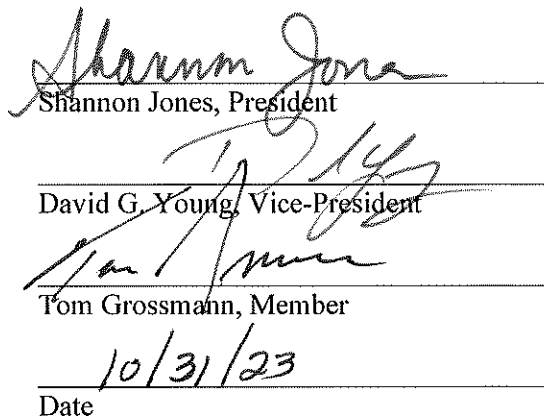 Shannon Jones
Shannon Jones, President
David G. Young, Vice-President
Tom Grossmann, Member
10/31/23
Date